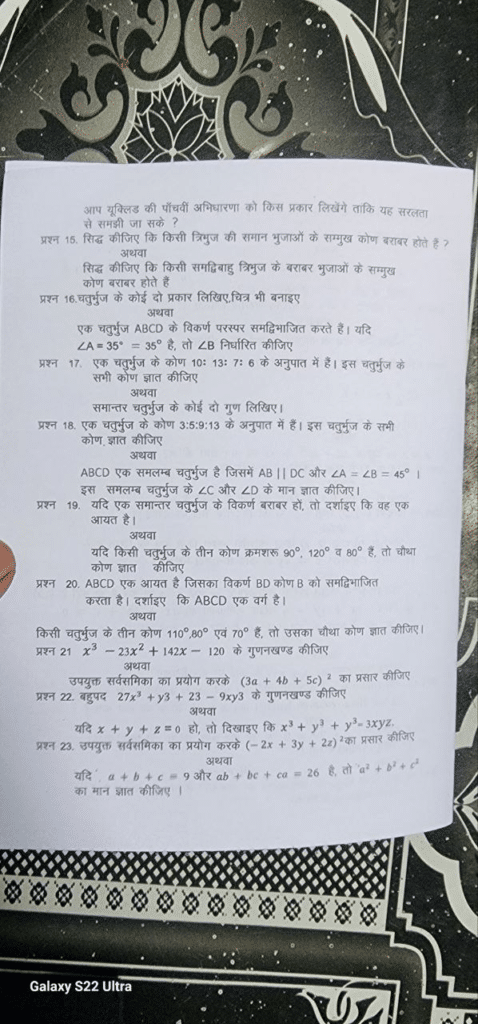 आप यूक्लिड की पाँचवीं अभिधारणा को किस प्रकार लिखेंगे ताकि यह सरलता
से समझी जा सके ?
प्रश्न 15. सिद्ध कीजिए कि किसी त्रिभुज की समान भुजाओं के सम्मुख कोण बराबर होते हैं ?
अथवा
सिद्ध कीजिए कि किसी समद्विबाहु त्रिभुज के बराबर भुजाओं के सम्मुख
कोण बराबर होते हैं
प्रश्न 16.चतुर्भुज के कोई दो प्रकार लिखिए,चित्र भी बनाइए
अथवा
एक चतुर्भुज ABCD के विकर्ण परस्पर समद्विभाजित करते हैं। यदि
∠A = 35° = 35° है, तो ∠B निर्धारित कीजिए
प्रश्न 17. एक चतुर्भुज के कोण 10: 13: 7: 6 के अनुपात में हैं। इस चतुर्भुज के
सभी कोण ज्ञात कीजिए
अथवा
समान्तर चतुर्भुज के कोई दो गुण लिखिए।
प्रश्न 18. एक चतुर्भुज के कोण 3:5:9:13 के अनुपात में हैं। इस चतुर्भुज के सभी
कोण ज्ञात कीजिए
अथवा
ABCD एक समलम्ब चतुर्भुज है जिसमें AB || DC और ∠A = ∠B = 45° ।
इस समलम्ब चतुर्भुज के ∠C और ∠D के मान ज्ञात कीजिए।
प्रश्न 19. यदि एक समान्तर चतुर्भुज के विकर्ण बराबर हों, तो दर्शाइए कि वह एक
आयत है।
अथवा
यदि किसी चतुर्भुज के तीन कोण क्रमशरू 90°, 120° व 80° हैं, तो चौथा
कोण ज्ञात कीजिए
प्रश्न 20. ABCD एक आयत है जिसका विकर्ण BD कोण B को समद्विभाजित
करता है। दर्शाइए कि ABCD एक वर्ग है।
अथवा
किसी चतुर्भुज के तीन कोण 110°,80° एवं 70° हैं, तो उसका चौथा कोण ज्ञात कीजिए।
प्रश्न 21 x³ − 23x² + 142x − 120 के गुणनखण्ड कीजिए
अथवा
उपयुक्त सर्वसमिका का प्रयोग करके (3a + 4b + 5c) ² का प्रसार कीजिए
प्रश्न 22. बहुपद 27x³ + y3 + 23 − 9xy3 के गुणनखण्ड कीजिए
अथवा
यदि x + y + z = 0 हो, तो दिखाइए कि x³ + y³ + y³= 3xyz.
प्रश्न 23. उपयुक्त सर्वसमिका का प्रयोग करके (− 2x + 3y + 2z) ²का प्रसार कीजिए
अथवा
यदि a + b + c = 9 और ab + bc + ca = 26 है, तो a² + b² + c²
का मान ज्ञात कीजिए ।
Galaxy S22 Ultra